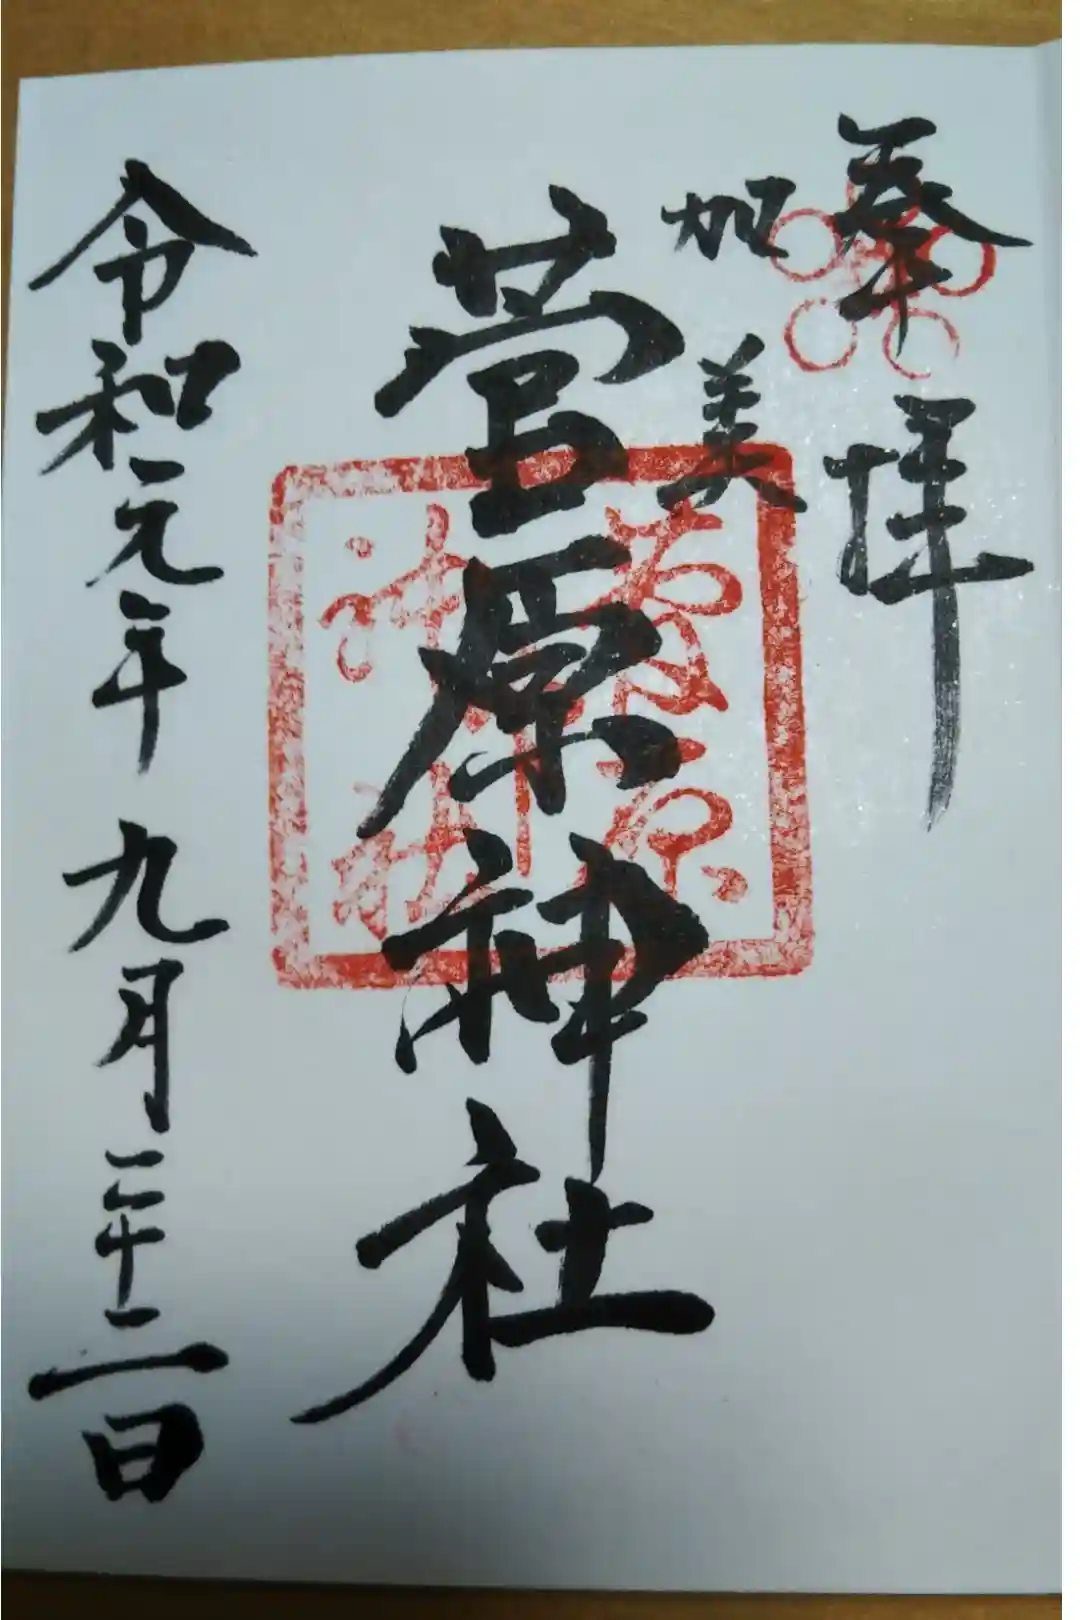 奉拝
加美
菅原神社
菅原
神社
令和元年九月二十二日